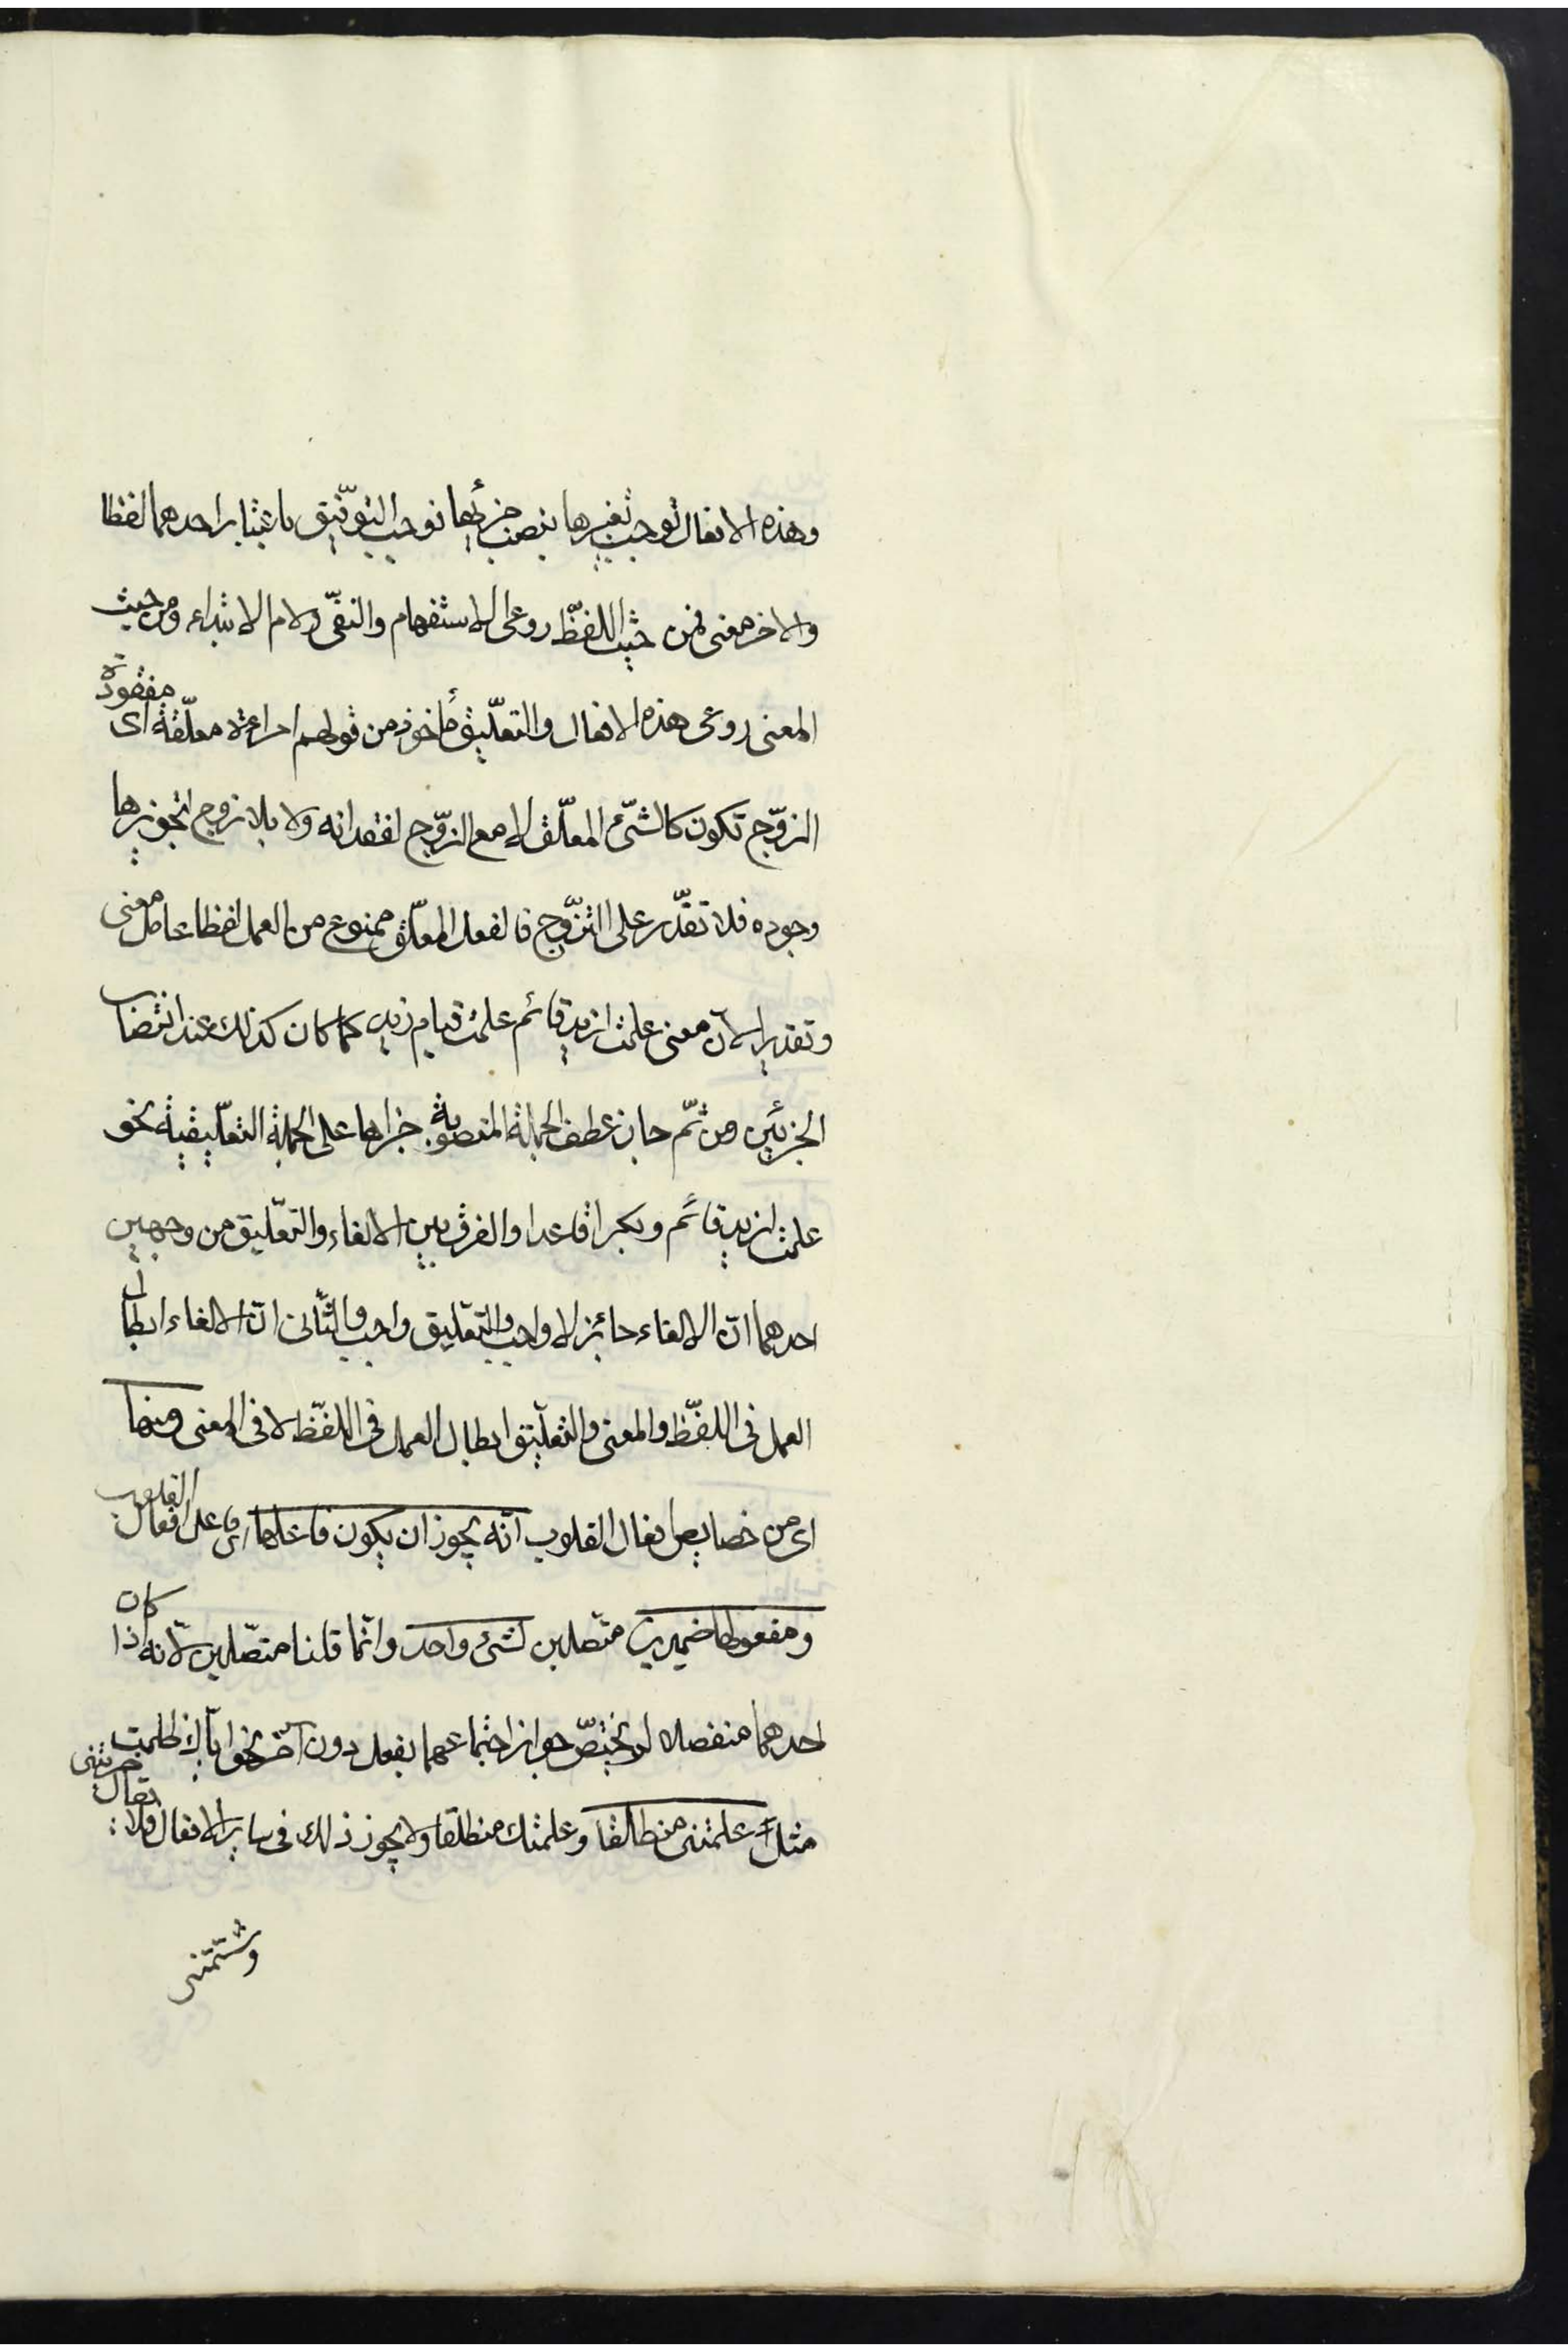 وهذه الافعال توجب تغيرها بنصب جزئيها فوجب التوفيق باعتبار احدهما لفظا
والاخر معنى فمن حيث اللفظ روعى الاستفهام والنفى ولام الابتداء ومن حيث
المعنى روعى هذه الافعال والتعليق مأخوذ من قولهم امراءة معلّقة اى مفقودة
الزوّج تكون كالشئ المعلّق لا مع الزوّج لفقدانه ولا بلا زوج لتجويزها
وجوده فلا تقدر على التزوّج فالفعل المعلّق ممنوع من العمل لفظا عامل معنى
وتقديرا لان معنى علمت لزيد قائم علمت قيام زيد كما كان كذلك عند انتصاب
الجزئين ومن ثمّ جاز عطف الجملة المنصوبة جزاها على الجملة التعليقية نحو
علمت لزيد قائم وبكرا قاعدا والفرق بين الالغاء والتعليق من وجهين
احدهما انّ الالغاء جائز لا واجب والتعليق واجب والثّانى انّ الالغاء ابطال
العمل فى اللفظ والمعنى والتعليق ابطال العمل فى اللفظ لا فى المعنى ومنها
اى من خصايص افعال القلوب انّه يجوز ان يكون فاعلها اى فاعل افعال القلوب
ومفعولها ضميرين متصلين لشئ واحد وانّما قلنا متصّلين لانّه اذا كان
احدهما منفصلا لم يختصّ جواز اجتماعهما بفعل دون آخر نحو ايّاك ظلمت
مثل علمتنى منطلقا وعلمتك منطلقا ولا يجوز ذلك فى ساير الافعال فلا يقال ضربتنى
وشتمتنى